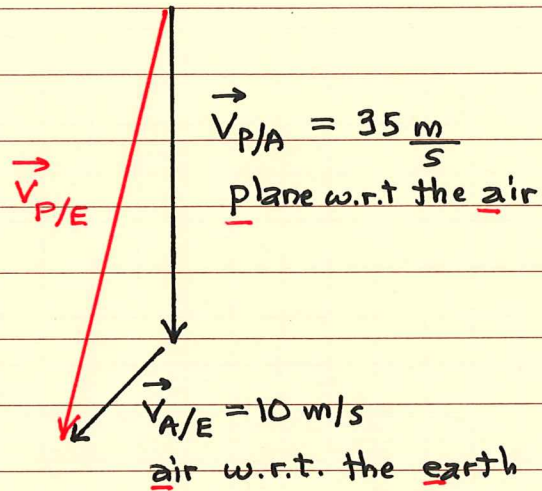 V⃗P/A = 35 m/s
plane w.r.t the air
V⃗P/E
V⃗A/E = 10 m/s
air w.r.t. the earth